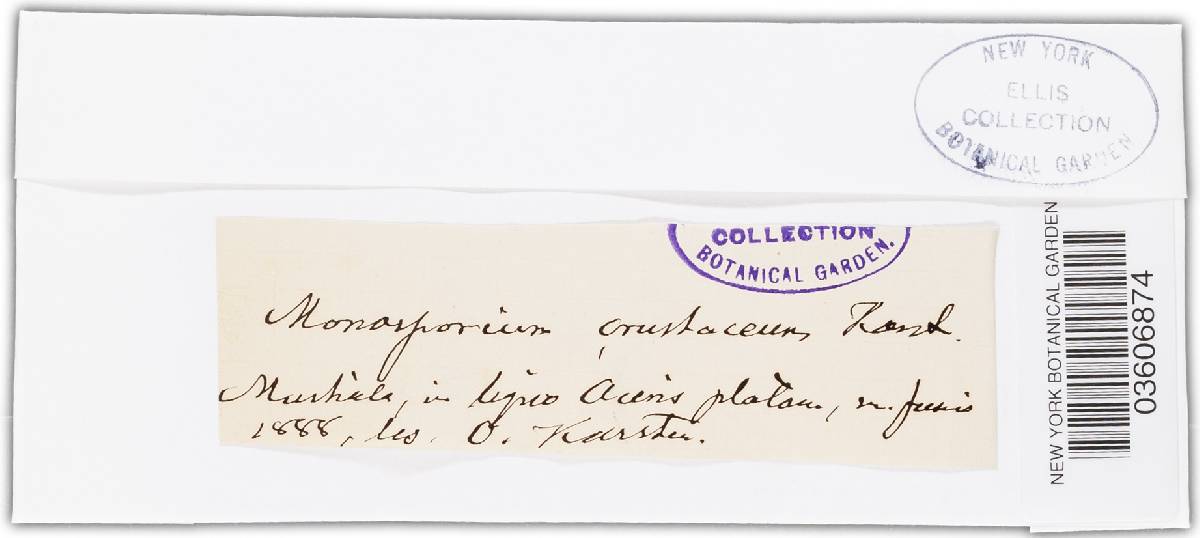 NEW YORK
ELLIS
COLLECTION
BOTANICAL GARDEN
COLLECTION
BOTANICAL GARDEN.
Monosporium crustaceum Karst.
Mustiala, in ligno Aceris platan., m. Junio
1888, leg. O. Karsten.
NEW YORK BOTANICAL GARDEN
03606874